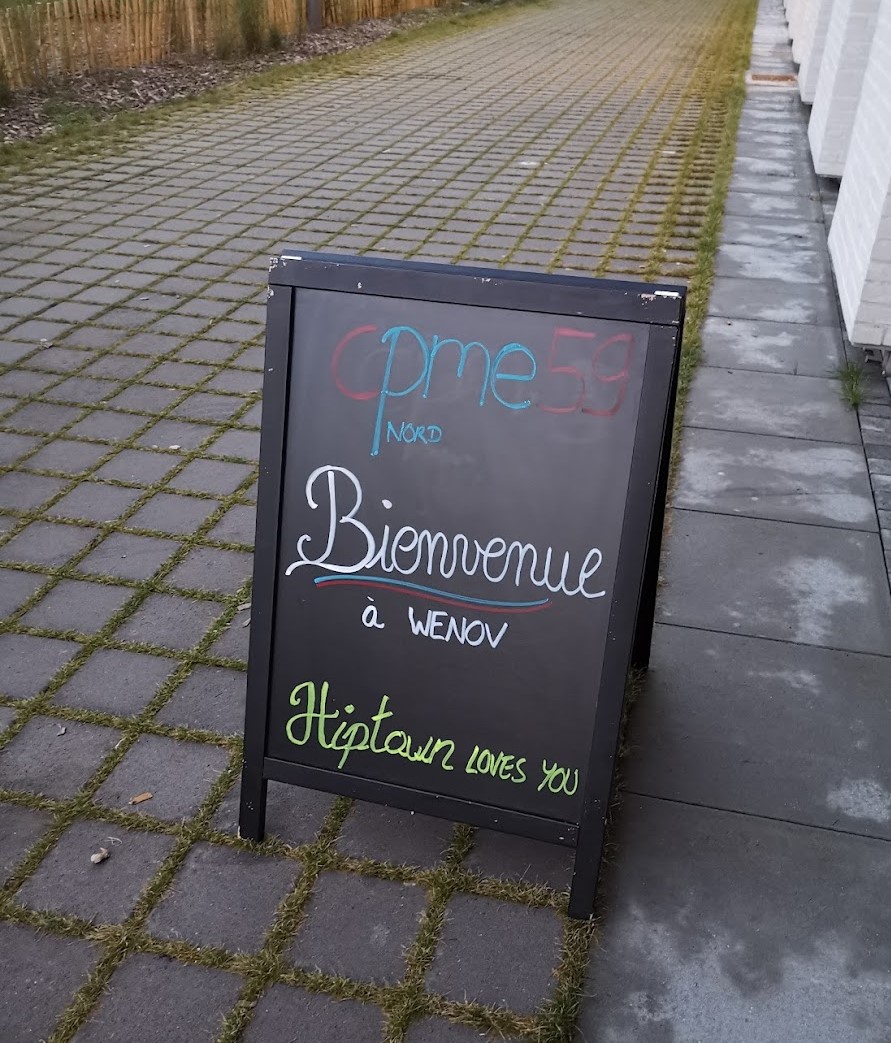 cpme59
NORD
Bienvenue
à WENOV
Hiptown LOVES YOU